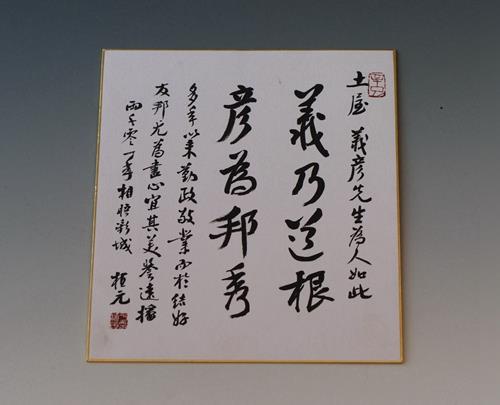 土屋 義彦先生為人如此
義乃道根
彦為邦秀
多年以来勤政敬業而於結好
友邦尤為尽心宜其美誉遠播
両千零一年相晤彩城 桓元